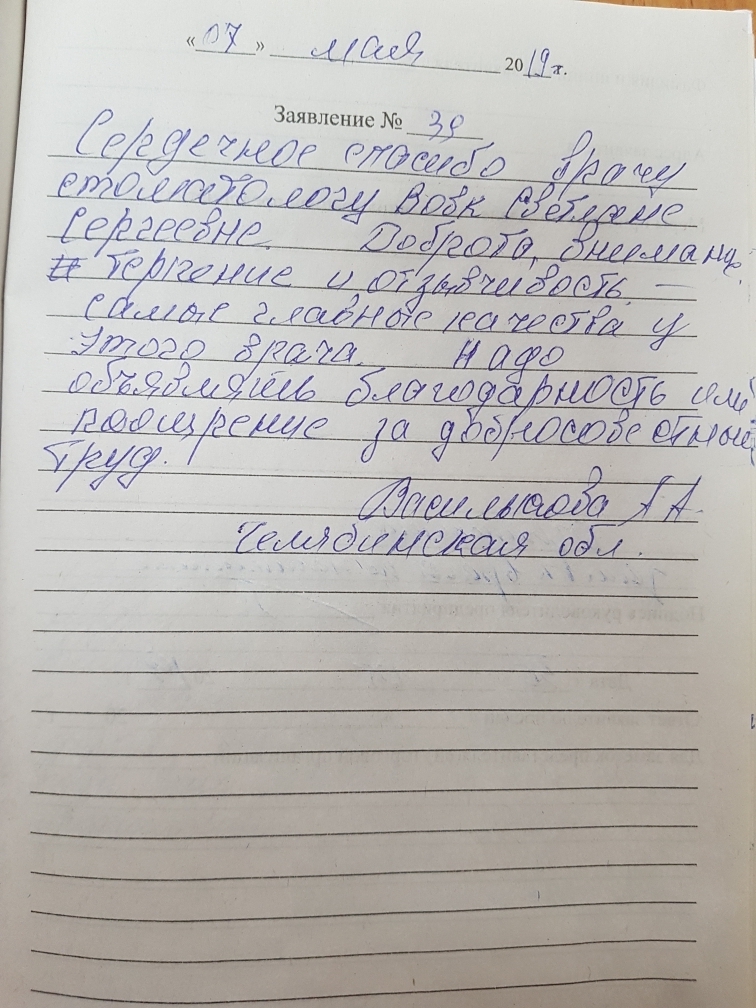 « 07 » мая 2019 г.
Заявление № 39
Сердечное спасибо врачу
стоматологу Вовк Светлане
Сергеевне. Доброта, внимание,
терпение и отзывчивость –
самые главные качества у
этого врача. Надо
объявлять благодарность или
поощрение за добросовестный
труд.
А.А.
Челябинская обл.